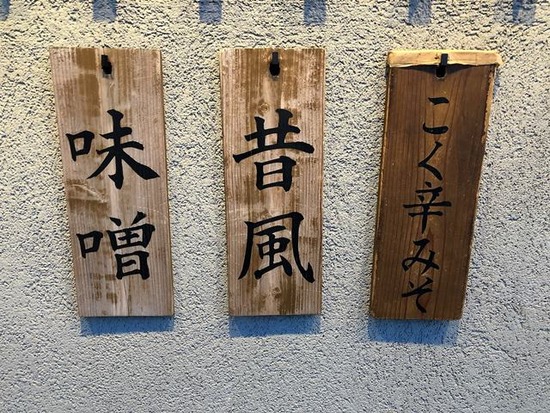 こく辛みそ
昔風
味噌